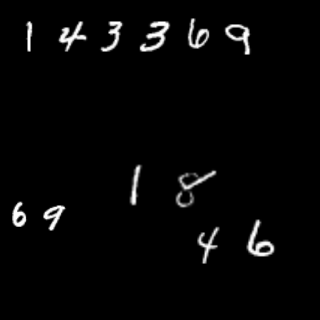 143369
18
69
46